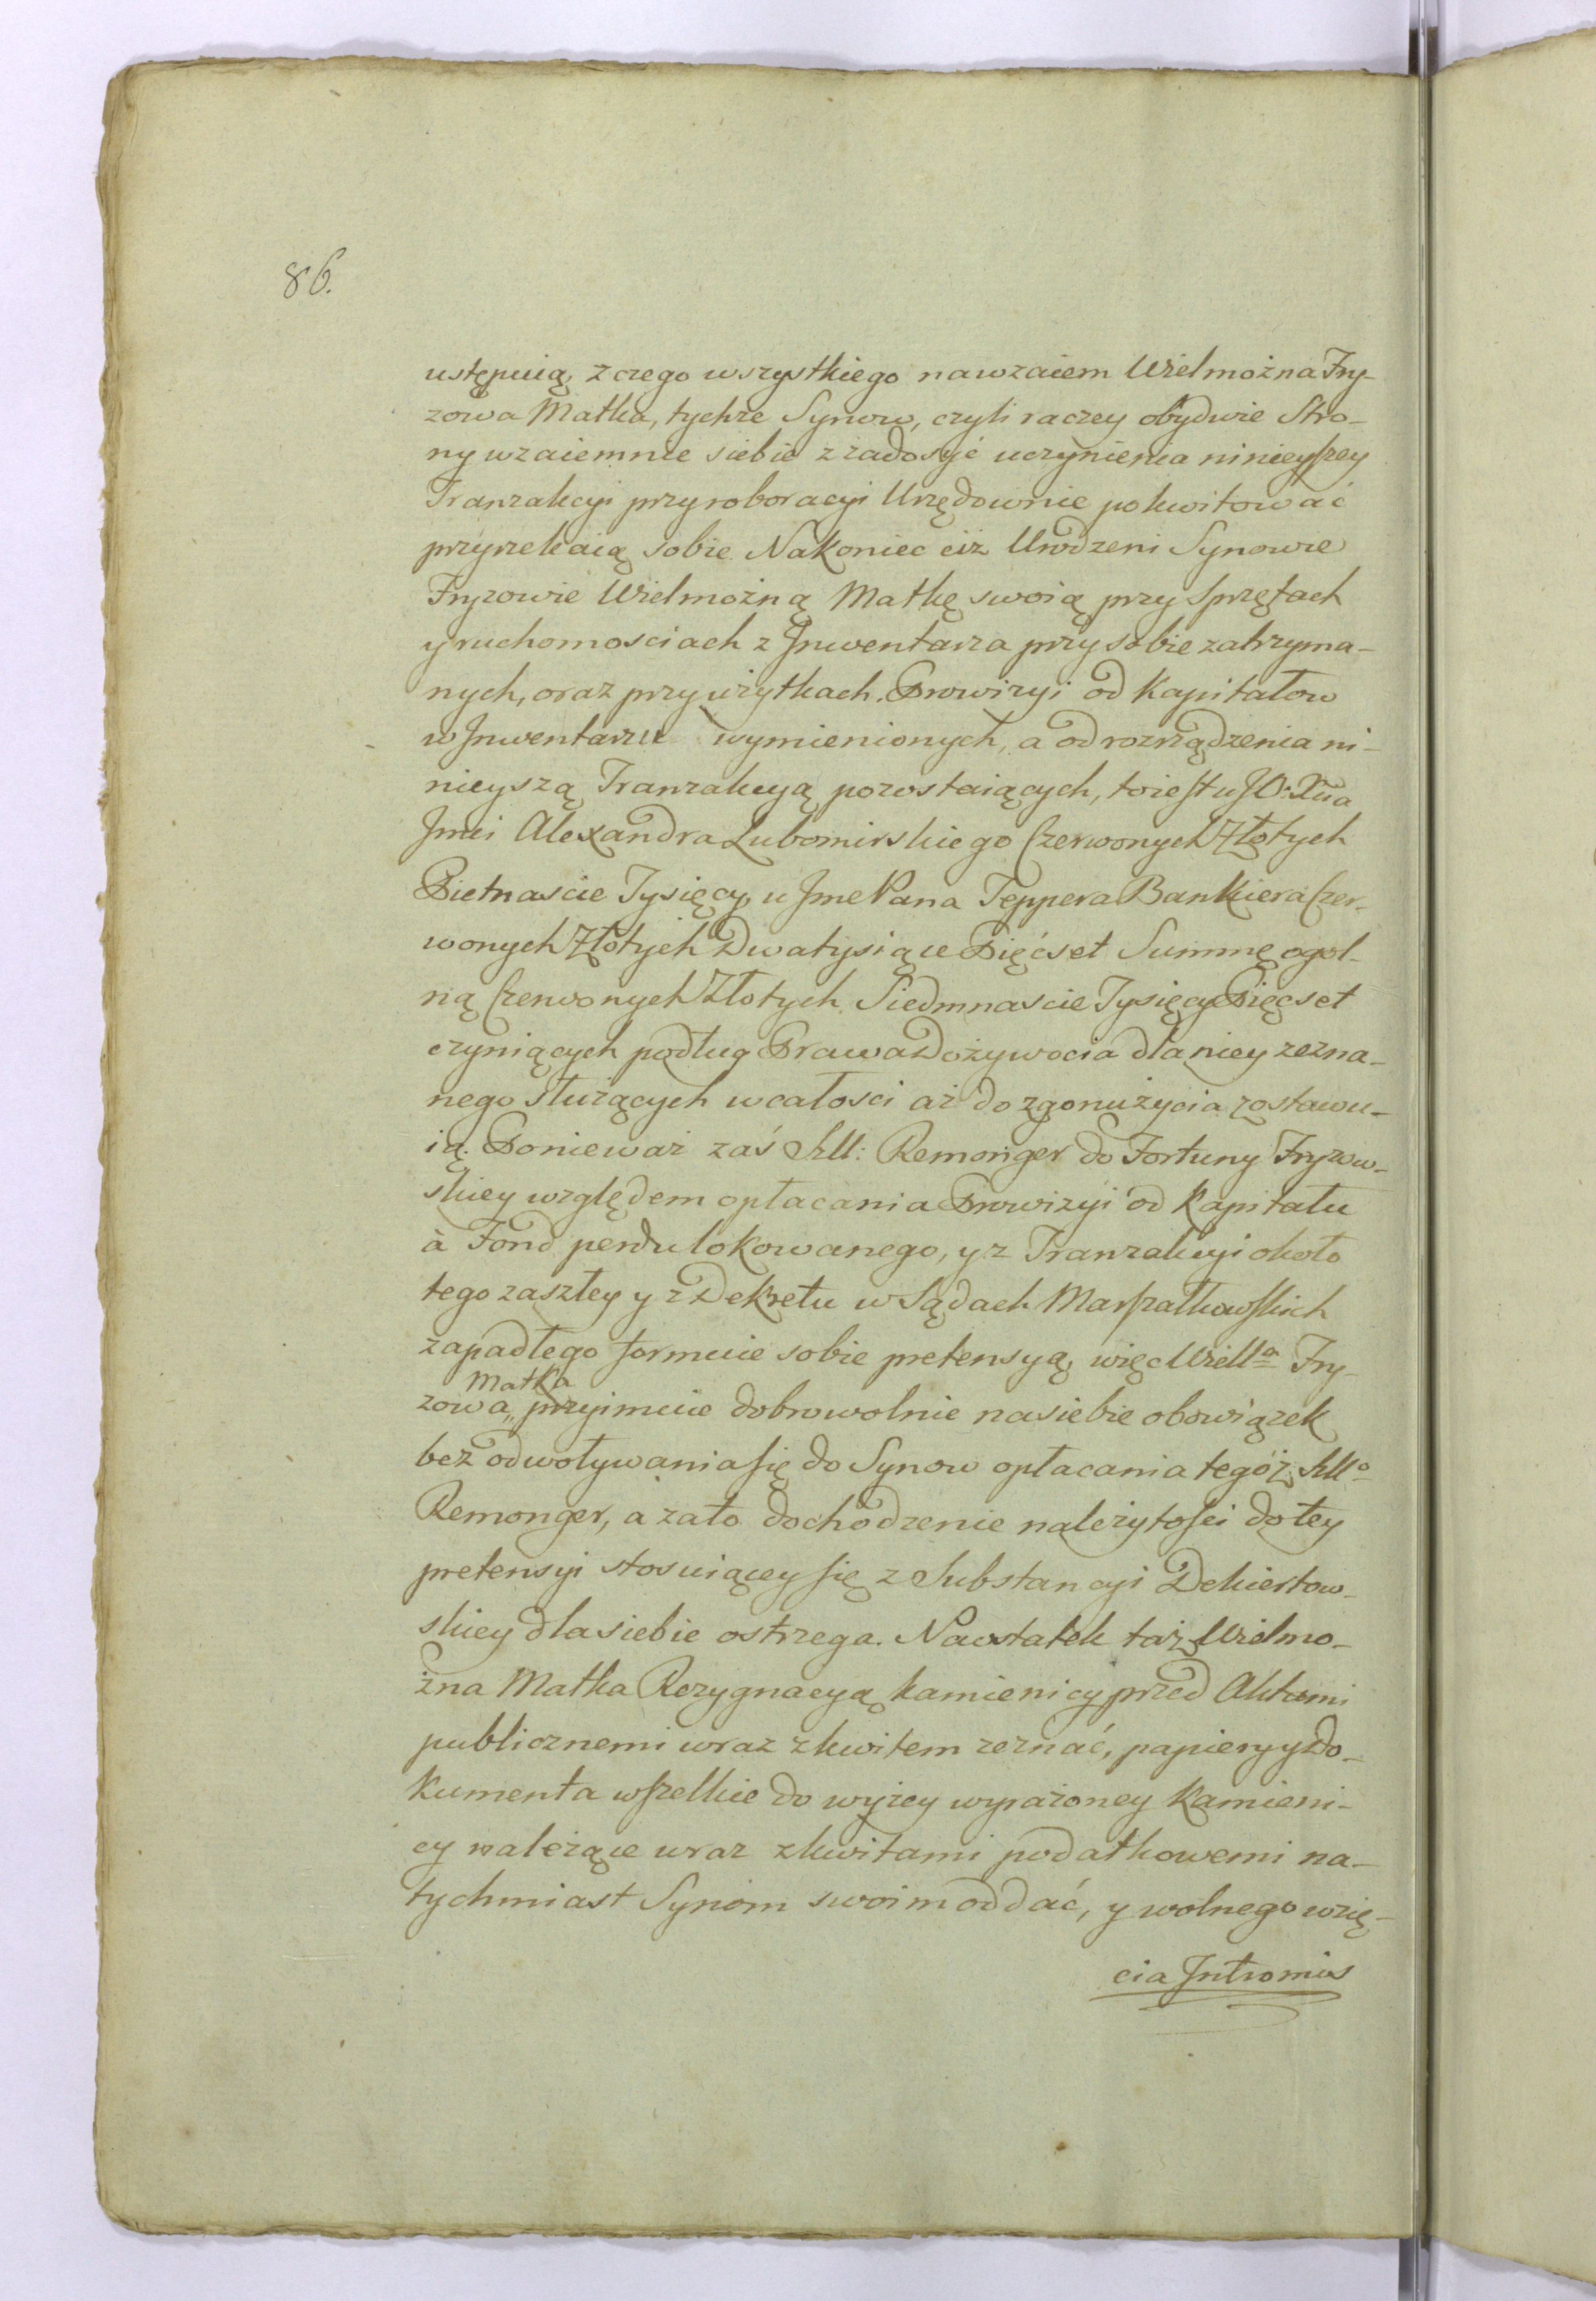 86.
ustępuią, z czego wszystkiego nawzaiem Wielmożna Fry-
zowa Matka, tychże Synow, czyli raczey obydwie Stro-
ny wzaiemnie siebie z zadosyć uczynienia ninieyszey
Tranzakcyi przy roboracyi Urzędownie pokwitować
przyrzekaią sobie. Nakoniec ciż Urodzeni Synowie
Fryzowie Wielmożną Matkę swoią przy Sprzętach
y ruchomosciach z Inwentarza przy sobie zatrzyma-
nych, oraz przy użytkach Prowizyi od Kapitałow
w Inwentarzu wymienionych, a od rozrządzenia ni-
nieyszą Tranzakcyą pozostaiących, toiest u JO: Xcia
Jmci Alexandra Lubomirskiego Czerwonych Złotych
Pietnascie Tysięcy, u Jme Pana Teppera Bankiera Czer-
wonych Złotych Dwatysiące Pięćset Summę ogol-
ną Czerwonych Złotych Siedmnascie Tysięcy Pięćset
czyniących podług Prawa Dożywocia dla niey zezna-
nego służących w całosci aż do zgonu życia zostawu-
ią. Ponieważ zaś Mll: Remonger do Fortuny Fryzow-
skiey względem opłacania Prowizyi od Kapitału
à Fond perdu lokowanego, y z Tranzakcyi około
tego zaszłey y z Dekretu w Sądach Marszałkowskich
zapadłego formuie sobie pretensyą, więc Wiella Fry-
Matka
zowa " przyimuie dobrowolnie na siebie obowiązek
bez odwoływania się do Synow opłacania tegoż Mll:
Remonger, a zato dochodzenie należytości do tey
pretensyi stosuiącey się z Substancyi Dekiertow-
skiey dla siebie ostrzega. Naostatek taż Wielmo-
żna Matka Rezygnacyą kamienicy przed Aktami
publicznemi wraz z kwitem zeznać, papiery y Do-
kumenta wszelkie do wyżey wyrażoney Kamieni-
cy należące wraz z kwitami podatkowemi na-
tychmiast Synom swoim oddać, y wolnego wzię-
cia Intromis